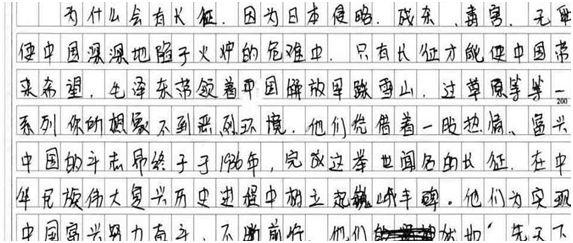 为什么会有长征.因为日本侵略.残杀.毒害.无耻
使中国深深地陷于火炉的危难中.只有长征才能使中国带
来希望.毛泽东带领着中国解放军跋雪山.过草原等等一
200
系列你的想象不到恶烈环境.他们凭借着一股热情、富兴
中国的斗志昂终于于1936年,完成这举世闻名的长征.在中
华民族伟大复兴历史进程中树立起巍峨丰碑。他们为实现
中国富兴努力奋斗,不断前行.他们 先天下